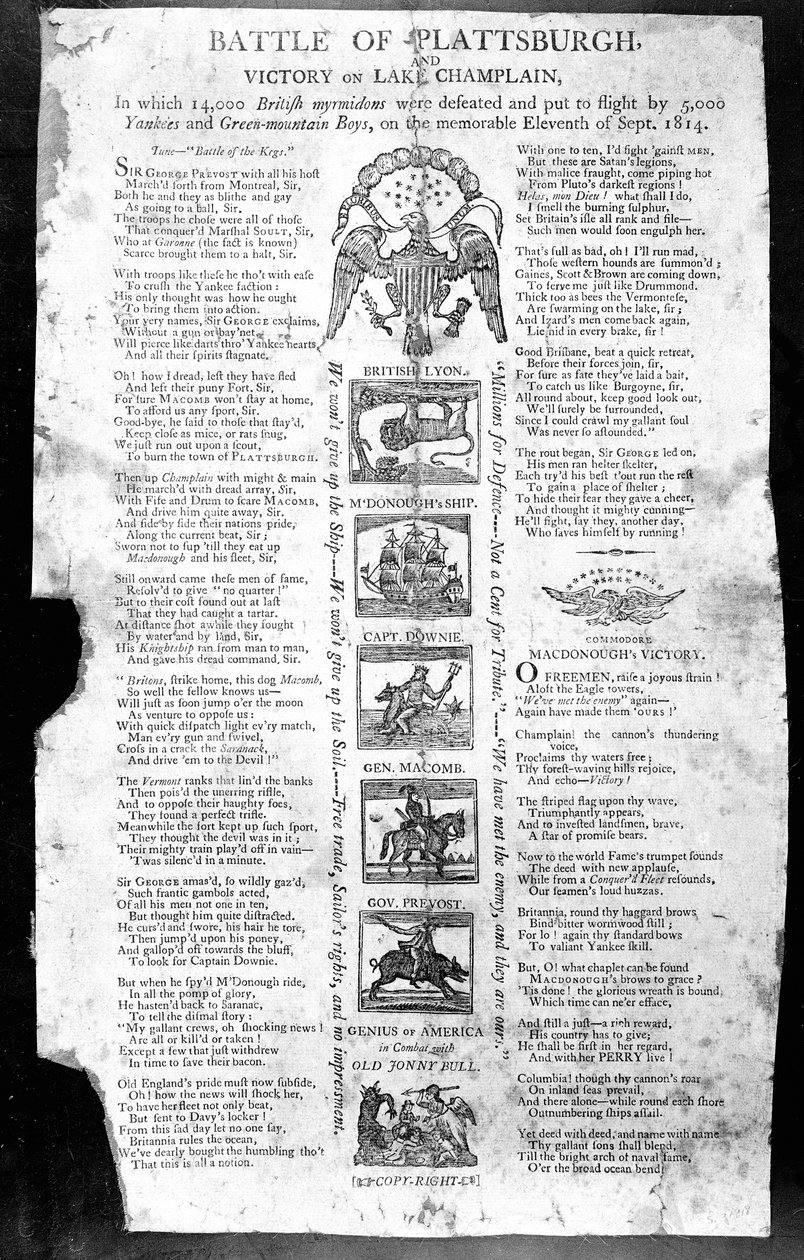 BATTLE OF PLATTSBURGH,
AND
VICTORY ON LAKE CHAMPLAIN,
In which 14,000 Britiſh myrmidons were defeated and put to flight by 5,000
Yankees and Green-mountain Boys, on the memorable Eleventh of Sept. 1814.
Tune—"Battle of the Kegs."
SIR GEORGE PREVOST with all his hoſt
March'd forth from Montreal, Sir,
Both he and they as blithe and gay
As going to a ball, Sir.
The troops he choſe were all of thoſe
That conquer'd Marſhal SOULT, Sir,
Who at Garonne (the fact is known)
Scarce brought them to a halt, Sir.
With troops like theſe he tho't with eaſe
To cruſh the Yankee faction:
His only thought was how he ought
To bring them into action.
Your very names, Sir GEORGE exclaims,
Without a gun or bay'net,
Will pierce like darts thro' Yankee hearts,
And all their ſpirits ſtagnate.
Oh! how I dread, leſt they have fled
And left their puny Fort, Sir,
For ſure MACOMB won't ſtay at home,
To afford us any ſport, Sir.
Good-bye, he ſaid to thoſe that ſtay'd,
Keep cloſe as mice, or rats ſnug,
We juſt run out upon a ſcout,
To burn the town of PLATTSBURGH.
Then up Champlain with might & main
He march'd with dread array, Sir,
With Fife and Drum to ſcare MACOMB,
And drive him quite away, Sir.
And ſide by ſide their nations pride,
Along the current beat, Sir;
Sworn not to ſup 'till they eat up
Macdonough and his fleet, Sir,
Still onward came theſe men of fame,
Reſolv'd to give "no quarter!"
But to their coſt found out at laſt
That they had caught a tartar.
At diſtance ſhot awhile they fought
By water and by land, Sir,
His Knightſhip ran from man to man,
And gave his dread command, Sir.
"Britons, ſtrike home, this dog Macomb,
So well the fellow knows us—
Will juſt as ſoon jump o'er the moon
As venture to oppoſe us:
With quick diſpatch light ev'ry match,
Man ev'ry gun and ſwivel,
Croſs in a crack the Saranack,
And drive 'em to the Devil!"
The Vermont ranks that lin'd the banks
Then pois'd the unerring rifle,
And to oppoſe their haughty foes,
They found a perfect trifle.
Meanwhile the fort kept up ſuch ſport,
They thought the devil was in it;
Their mighty train play'd off in vain—
'Twas ſilenc'd in a minute.
Sir GEORGE amas'd, ſo wildly gaz'd,
Such frantic gambols acted,
Of all his men not one in ten,
But thought him quite diſtracted.
He curs'd and ſwore, his hair he tore,
Then jump'd upon his poney,
And gallop'd off towards the bluff,
To look for Captain Downie.
But when he ſpy'd M'Donough ride,
In all the pomp of glory,
He haſten'd back to Saranac,
To tell the diſmal ſtory:
"My gallant crews, oh ſhocking news!
Are all or kill'd or taken!
Except a few that juſt withdrew
In time to ſave their bacon.
Old England's pride muſt now ſubſide,
Oh! how the news will ſhock her,
To have her fleet not only beat,
But ſent to Davy's locker!
From this ſad day let no one ſay,
Britannia rules the ocean,
We've dearly bought the humbling tho't
That this is all a notion.
E PLURIBUS UNUM
We won't give up the Ship----We won't give up the Soil.----Free trade, Sailor's rights, and no impreſsment.
BRITISH LYON.
M'DONOUGH's SHIP.
CAPT. DOWNIE.
GEN. MACOMB.
GOV. PREVOST.
GENIUS OF AMERICA
in Combat with
OLD JONNY BULL.
[COPY-RIGHT]
"Millions for Defence---Not a Cent for Tribute."----"We have met the enemy, and they are ours."
With one to ten, I'd fight 'gainſt MEN,
But theſe are Satan's legions,
With malice fraught, come piping hot
From Pluto's darkeſt regions!
Helas, mon Dieu! what ſhall I do,
I ſmell the burning ſulphur,
Set Britain's iſle all rank and file—
Such men would ſoon engulph her.
That's full as bad, oh! I'll run mad,
Thoſe weſtern hounds are ſummon'd;
Gaines, Scott & Brown are coming down,
To ſerve me juſt like Drummond.
Thick too as bees the Vermonteſe,
Are ſwarming on the lake, ſir;
And Izard's men come back again,
Lie hid in every brake, ſir!
Good Briſbane, beat a quick retreat,
Before their forces join, ſir,
For ſure as fate they've laid a bait,
To catch us like Burgoyne, ſir,
All round about, keep good look out,
We'll ſurely be ſurrounded,
Since I could crawl my gallant ſoul
Was never ſo aſtounded."
The rout began, Sir GEORGE led on,
His men ran helter ſkelter,
Each try'd his beſt t'out run the reſt
To gain a place of ſhelter;
To hide their fear they gave a cheer,
And thought it mighty cunning—
He'll fight, ſay they, another day,
Who ſaves himſelf by running!
COMMODORE
MACDONOUGH's VICTORY.
O FREEMEN, raiſe a joyous ſtrain!
Aloft the Eagle towers,
"We've met the enemy" again—
Again have made them 'OURS!'
Champlain! the cannon's thundering
voice,
Proclaims thy waters free;
Thy foreſt-waving hills rejoice,
And echo—Victory!
The ſtriped flag upon thy wave,
Triumphantly appears,
And to inveſted landſmen, brave,
A ſtar of promiſe bears.
Now to the world Fame's trumpet ſounds
The deed with new applauſe,
While from a Conquer'd Fleet reſounds,
Our ſeamen's loud huzzas.
Britannia, round thy haggard brows
Bind bitter wormwood ſtill;
For lo! again thy ſtandard bows
To valiant Yankee ſkill.
But, O! what chaplet can be found
MACDONOUGH's brows to grace?
'Tis done! the glorious wreath is bound,
Which time can ne'er efface,
And ſtill a juſt—a rich reward,
His country has to give;
He ſhall be firſt in her regard,
And with her PERRY live!
Columbia! though thy cannon's roar
On inland ſeas prevail,
And there alone—while round each ſhore
Outnumbering ſhips aſſail.
Yet deed with deed, and name with name
Thy gallant ſons ſhall blend,
Till the bright arch of naval fame,
O'er the broad ocean bend!